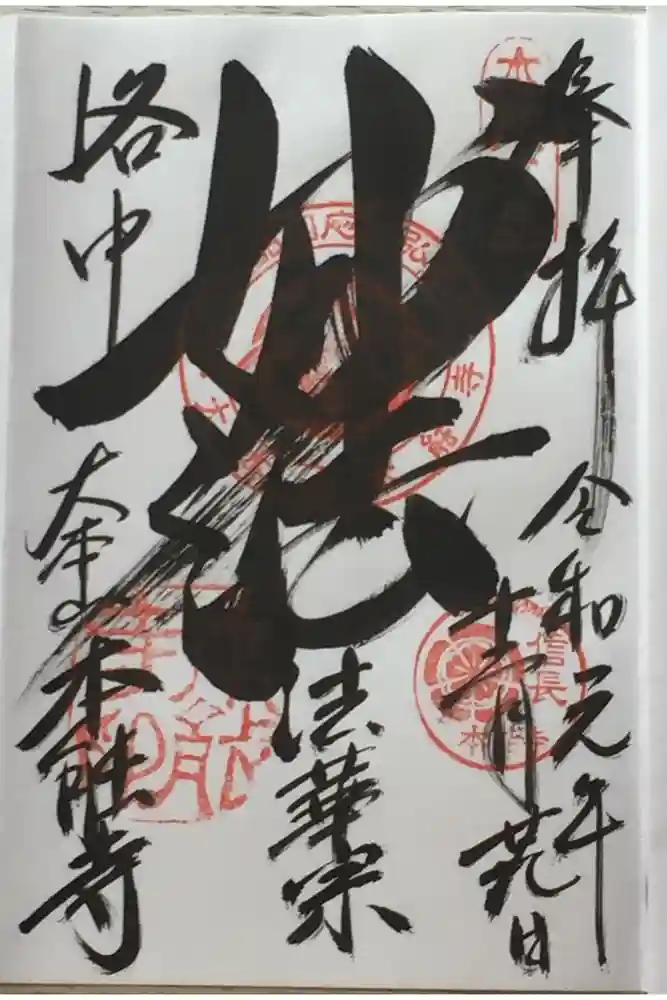 奉拝
令和元年
月廿九日
妙法
法華宗
洛中
大本山
本能寺
信長